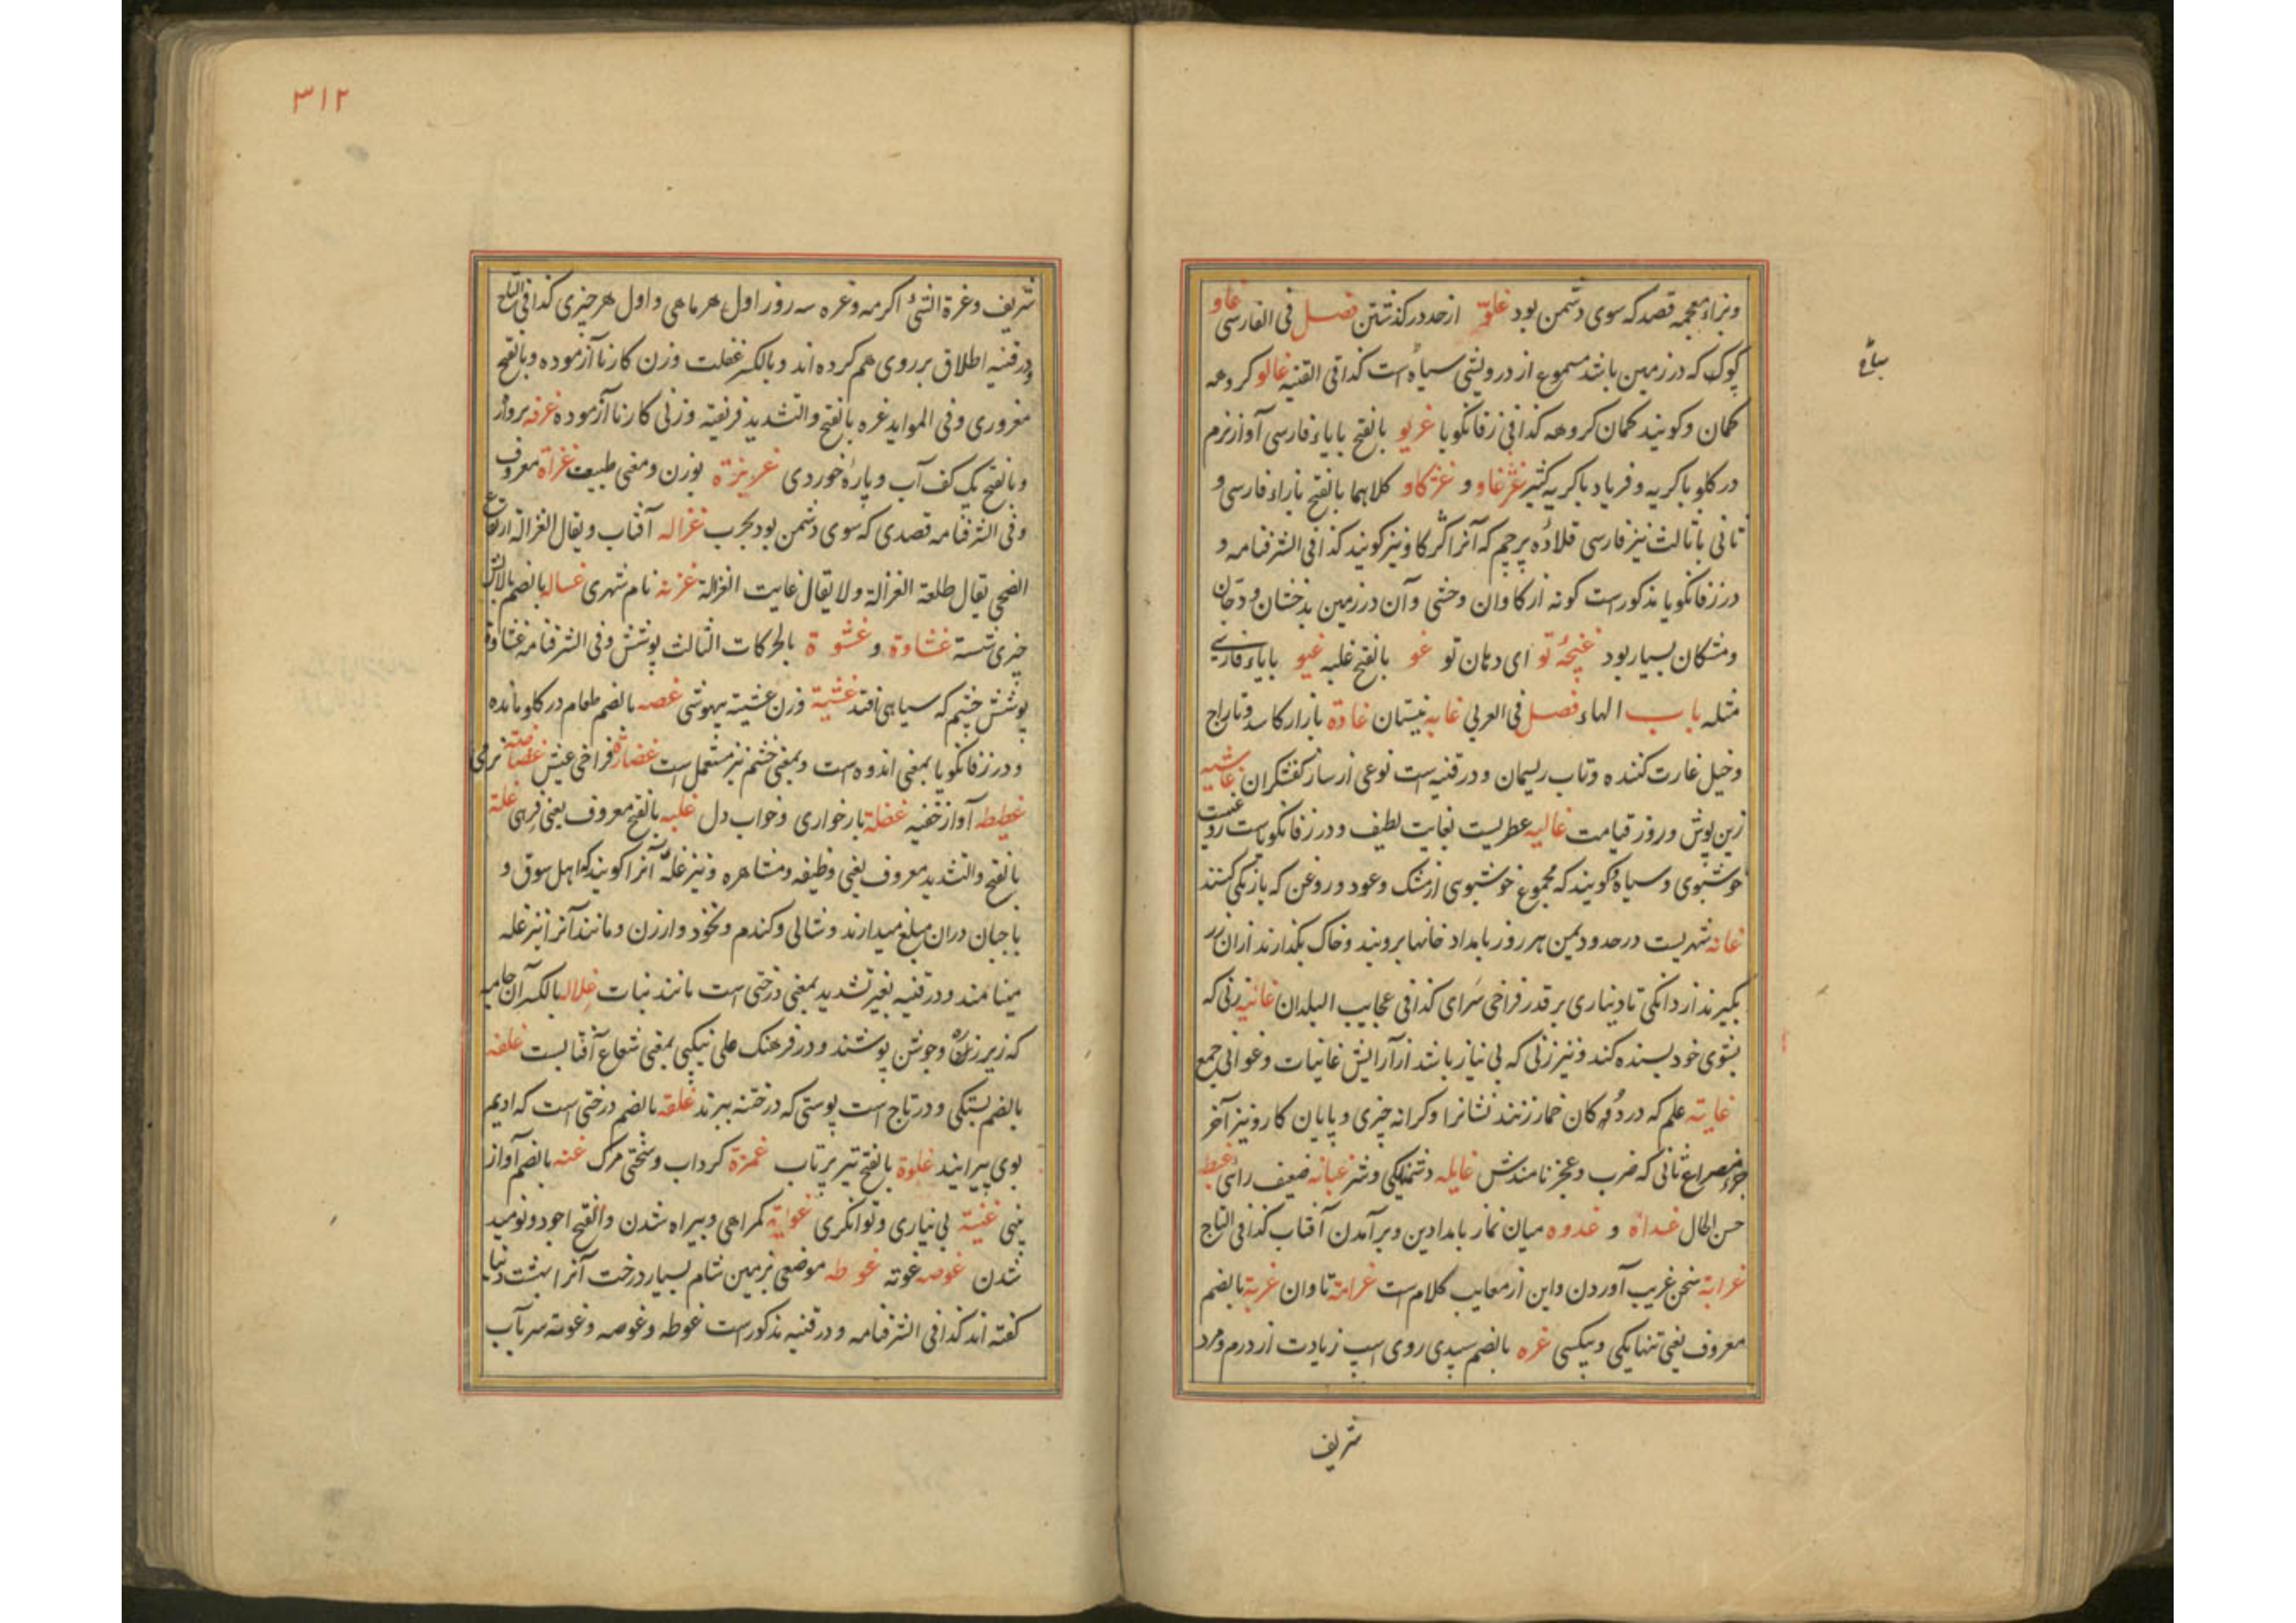 وبزاء معجمه قصد که سوی دشمن بود غلوّ از حد درگذشتن فصل فی الفارسی غاو
کوک که در زمین باشد مسموع از درویشی سیاه است کذا فی القنیه غالو کروهه
سیاح
کمان و کویند کمان کروهه کذا فی زفانکویا غریو بالفتح بایاء فارسی آواز نرم
در کلو با کریه و فریاد با کریه کثیر غژغاو و غژکاو کلاهما بالفتح بازاء فارسی و
ثانی باثالث نیز فارسی قلاده پرچم که آنرا کژکاو نیز کویند کذا فی الشرفنامه و
در زفانکویا مذکور است کونه از کاوان وحشی و آن در زمین بدخشان و
و مشکان بسیار بود غنچهٔ تو ای دهان تو غو بالفتح غلبه غیو بایاء فارسی
مثله باب الهاء فصل فی العربی غابه نیستان غادة بازار کاسد و تاراج
و خیل غارت کننده و تاب ریسمان و در قنیه است نوعی از ساز کفشکران غاشیه
زین پوش و روز قیامت غالیه عطریست بغایت لطیف و در زفانکویاست
خوشبوی و سیاه و کویند که مجموع خوشبوی از مشک و عود و روغن که بار یکی کنند
غانه شهریست در حدود یمن هر روز بامداد خانها بروبند و خاک بکذارند از آن زر
بکیرند از دانکی تا دیناری بر قدر فراخی سرای کذا فی عجایب البلدان غانیه زنی که
بشوی خود بسنده کند و نیز زنی که بی نیاز باشد از آرایش غانیات و غوانی جمع
غایة علم که در دوکان خمار زنند نشانرا و کرانه چیزی و پایان کار و نیز آخر
جزء مصراع ثانی که ضرب و عجز نامندش غایله دشمنیکی و شر غبانه ضعیف رای غبطه
حسن الحال غداة و غدوه میان نماز بامدادین و برآمدن آفتاب کذا فی التاج
غرابة سخن غریب آوردن و این از معایب کلام است غرامة تاوان غربة بالضم
معروف یعنی تنهایکی و بیکسی غره بالضم سپیدی روی اسپ زیادت از درم و مرد
شریف
٣١٢
شریف و غرة الشئ اکرمه و غره سه روز اول هر ماهی و اول هر چیزی کذا فی التاج
و در قنیه اطلاق بر روی هم کرده اند و بالکسر غفلت و زن کارنا آزموده و بالفتح
مغروری و فی الموايد غره بالفتح والتشدید فریفته و زنی کارنا آزموده غرفه پرواز
و بالفتح یک کف آب و پاره خوردی غریزة بوزن و معنی طبیعت غزاة معروف
و فی الشرفنامه قصدی که سوی دشمن بود بحرب غزاله آفتاب و یقال الغزالة ارتفاع
الضحی یقال طلعة الغزالة ولا یقال غابت الغزالة غزنه نام شهری غساله بالضم بالایش
چیزی شسته غشاوة و غشوة بالحرکات الثالث پوشش و فی الشرفنامه غشاوة
پوشش چشم که سیاهی افتد غشیة وزن عشیة بیهوشی غصه بالضم طعام در کلو مانده
و در زفانکویا بمعنی اندوه است و بمعنی خشم نیز مستعمل است غضارة فراخی عیش غضاضة نرمی
غطیطه آواز خفیه غفلة بارخواری و خواب دل غلبه بالفتح معروف یعنی فربهی غلة
بالفتح والتشدید معروف یعنی وظیفه و مشاهره و نیز غله آنرا کویند که اهل سوق و
باجبان در آن مبلغ میدارند و شالی و کندم و نخود و ارزن و مانند آنرا نیز غله
مینامند و در قنیه بغیر تشدید بمعنی درختی است مانند نبات غلاله بالکسر آن جامه
که زیر زره و جوشن پوشند و در فرهنک علی نیکپی بمعنی شعاع آفتابست غلفه
بالضم بستکی و در تاج است پوستی که در ختنه ببرند غلقه بالضم درختی است که ادیم
بوی پیرایند غلوة بالفتح تیر پرتاب غمزة کرداب و سختی مرک غنه بالضم آواز
بینی غنیة بی نیازی و توانکری غوایة کمراهی و بیراه شدن و بالفتح اجود و نومید
شدن غوصه غوته غوطه موضعی بزمین شام بسیار درخت آنرا بهشت دنیا
کفته اند کذا فی الشرفنامه و در قنیه مذکور است غوطه و غوصه و غوته سر بآب